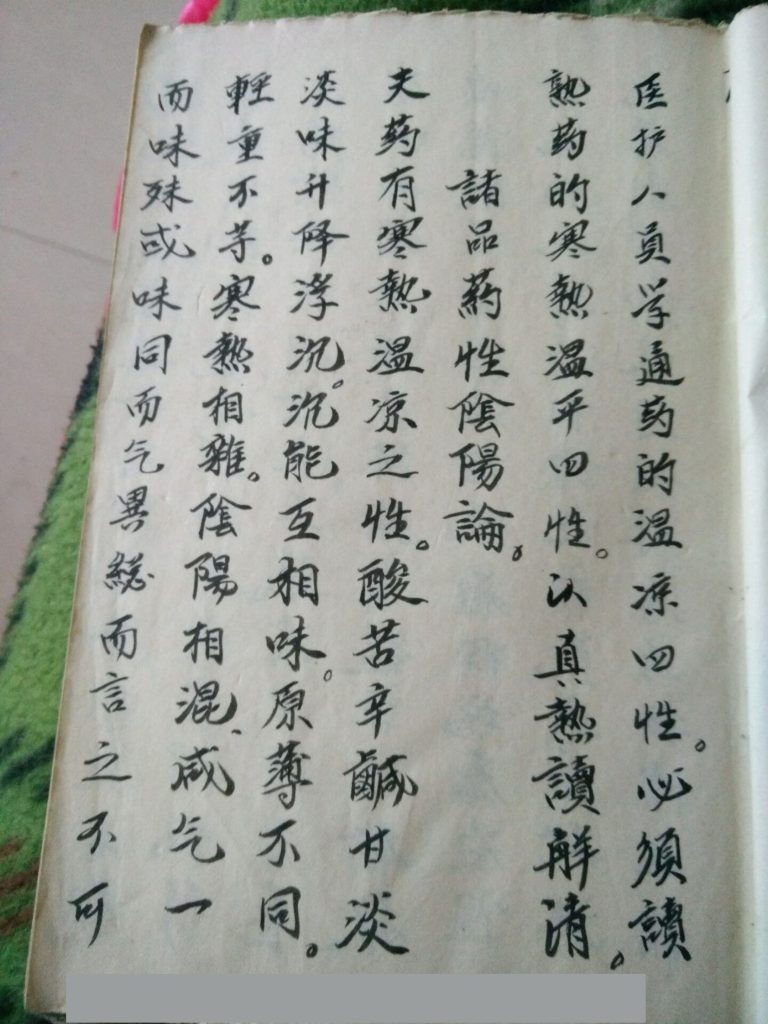 医护人员学通药的温凉四性。必须讀
熟药的寒熱温平四性。认真熱讀解清。
諸品药性陰陽論。
夫药有寒熱温凉之性。酸苦辛鹹甘淡
淡味升降浮沉。沉能互相味。原薄不同。
輕重不等。寒熱相雜。陰陽相混、咸气一
而味殊或味同而气異総而言之不可